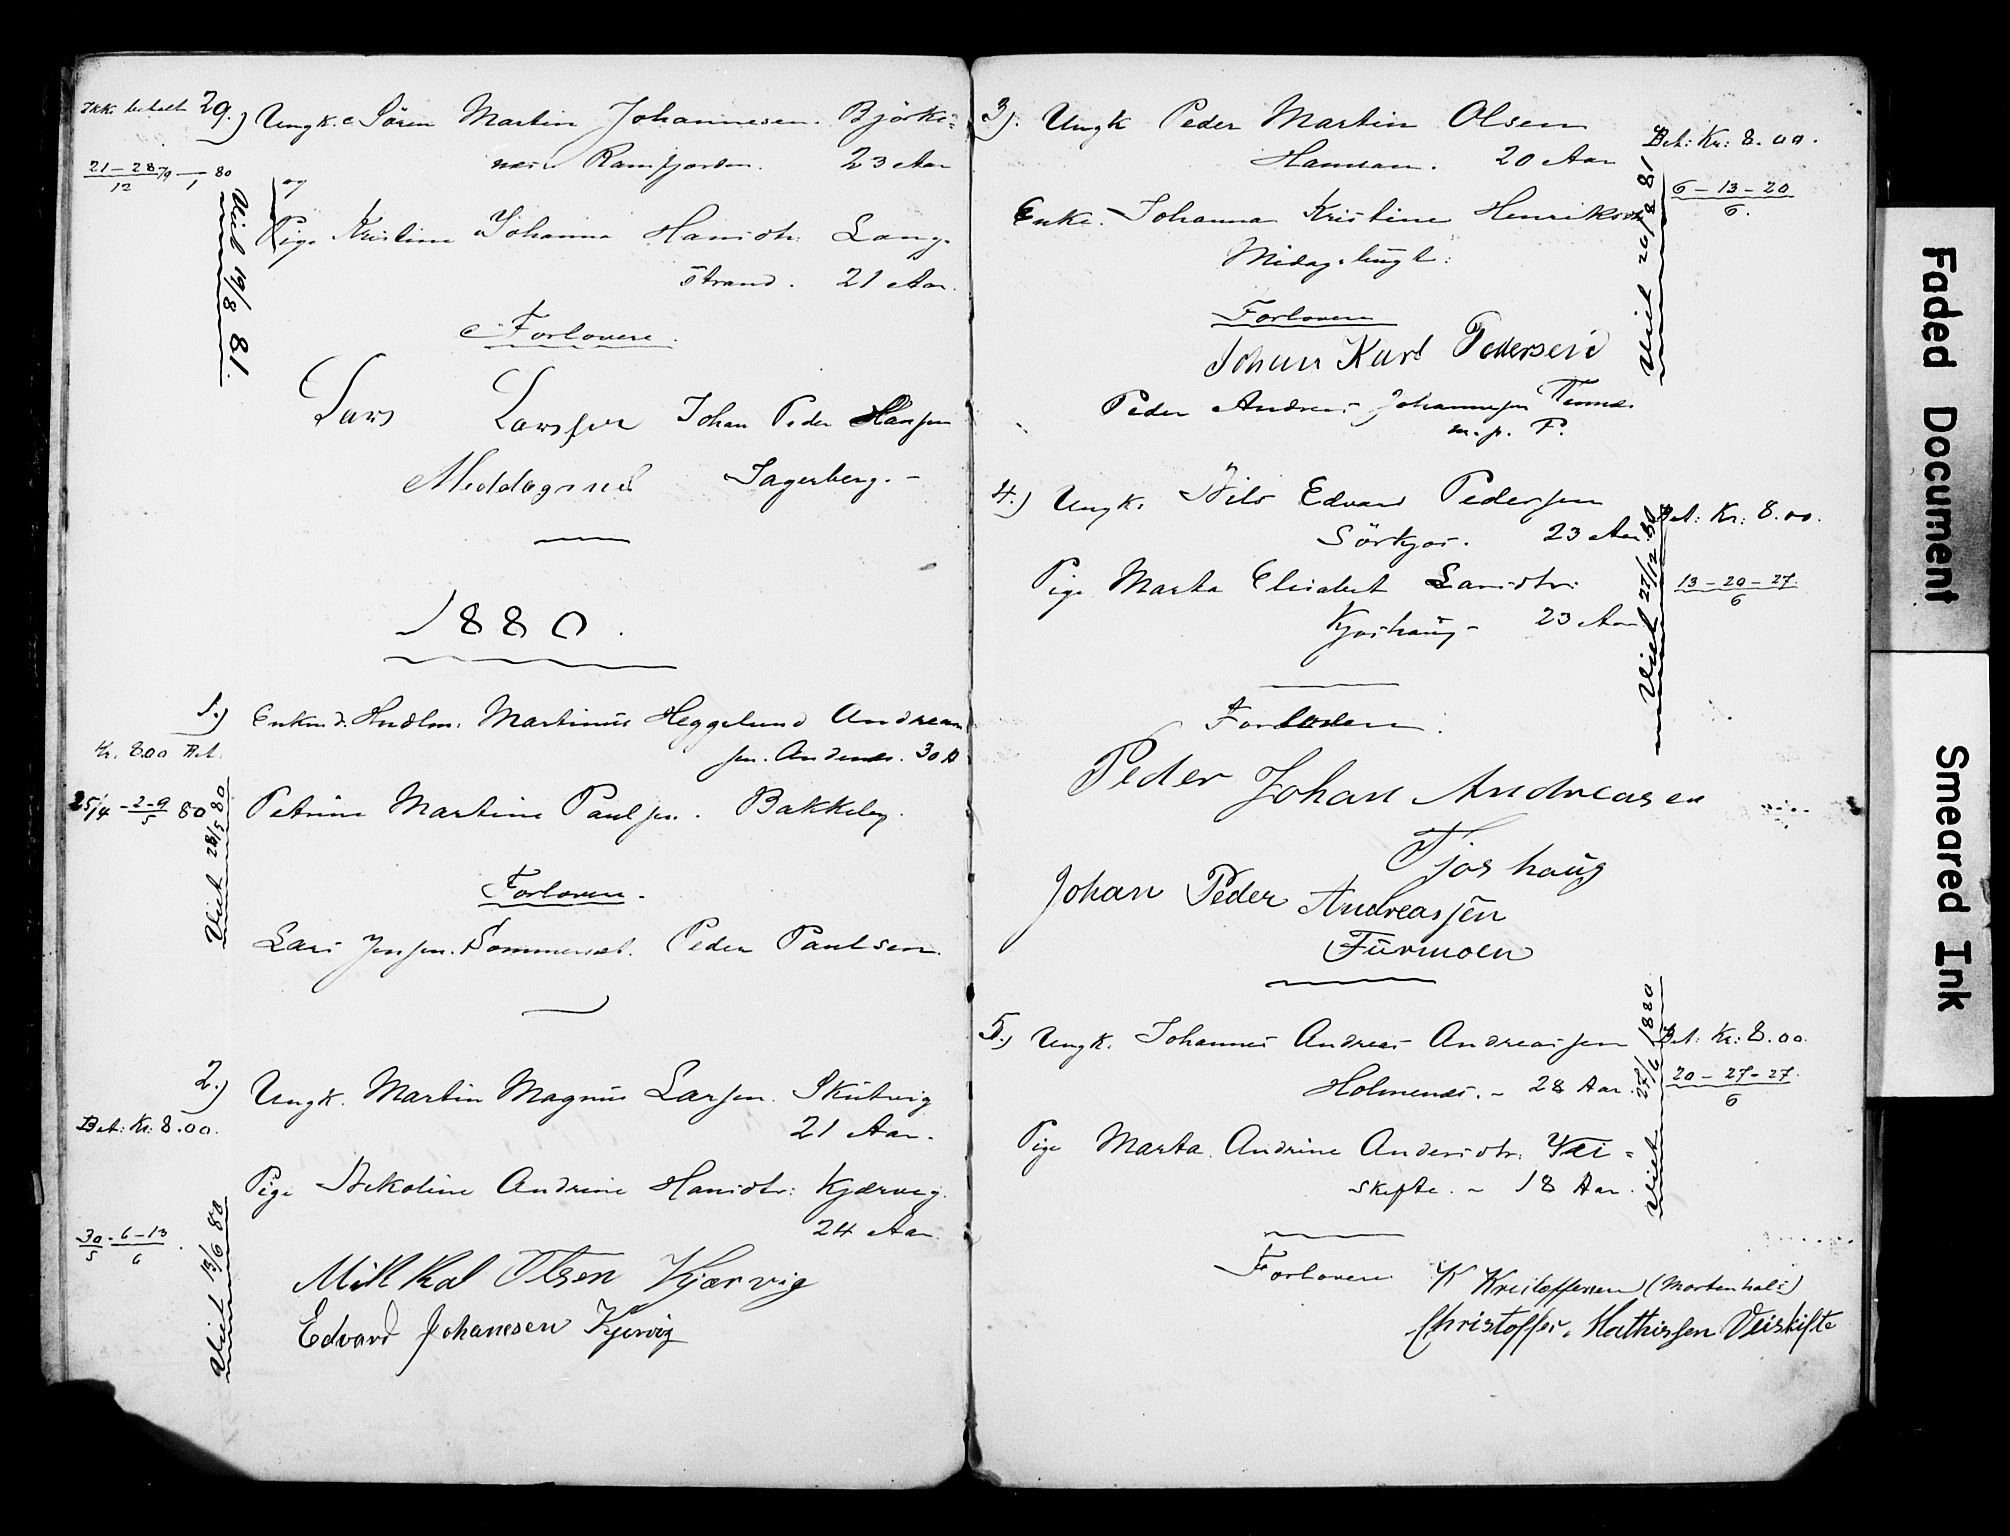 Ikke betalt 29.) Ungk. Sören Martin Johannesen. Björke=
næs Ramfjorden. 23 Aar
21-28/12 79 – /1 80
og
Pige Kristine Johanna Hansdtr. Lang=
strand. 21 Aar.
Viet 19/8 81.
Forlovere.
Lars Larssen Johan Peder Hansen
Meddagsnes Lagerberg.-
1880.
1.) Enkmd. Hndlm: Martinus Heggelund Andreas
sen. Andenes. 30 A
Kr. 8.00 Bet.
25/4 - 2-9/5 80
Petrine Martine Paulsen. Bakkeby.
Viet 28/5 80
Forlovere.
Lars Jensen. Sommerset. Peder Paulsen.
2.) Ungk. Martin Magnus Larsen. Skutvig
21 Aar.
Bet: Kr: 8.00.
Pige Nekoline Andrine Hansdtr: Kjærvig.
24 Aar.
30/5 - 6-13/6.
Viet 13/6 80
Mikkal Olsen Kjærvig
Edvard Johannesen Kjærvig
3). Ungk Peder Martin Olsen
20 Aar
Bet: Kr: 8.00.
6-13-20
6.
Enke. Johanna Kristine Henriksdtr
Viet 26/8 81
Forlovere
Johan Karl Pedersen
Peder Andreas Johannesen
m. p. P.
4.) Ungk. Nils Edvard Pedersen
Sörkjos. 23 Aar
Bet: Kr: 8.00.
Pige Marta Elisabet Larsdtr:
Kjoshaug- 23 Aar
13-20-27.
6
Viet 22/12 80
Forlovere.
Peder Johan Andreasen
Kjoshaug
Johan Peder Andreassen
Furmoen
5.) Ungk. Johannes Andreas Andreassen
Holmenes.- 28 Aar.
Bet: Kr: 8.00.
20-27-27.
6
Pige Marta Andrine Andersdtr: Vei=
skifte.- 18 Aar.
Viet 27/6 1880
Forlovere K Kristoffersen (Mortenhals)
Christoffer Mathissen Veiskifte
Faded Document
Smeared Ink